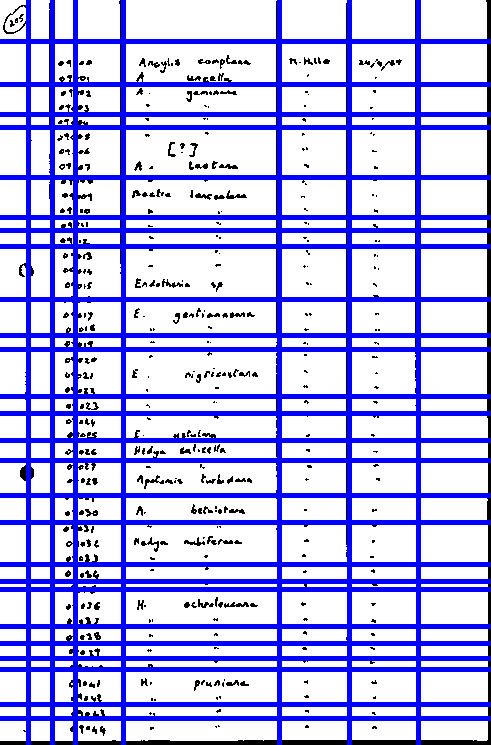 205
09000 Ancylis comptana
09001 A uncella " "
09002 A. geminana " "
09003 " " " "
09004 " " " "
09005 " " " "
09006 [?] " "
09007 A. laetana " "
09008 " "
09009 Bactra lanceolana " "
09010 " " " "
09011 " " " "
09012 " " " "
09013 " " " "
09014 " " " "
09015 Endothenia sp " "
09017 E. gentianaeana " "
09018 " " " "
09019 " " " "
09020 " " " "
09021 E. nigricostana " "
09022 " " " "
09023 " " " "
09024 " " " "
09025 E. ustulana " "
09026 Hedya salicella " "
09027 " " " "
09028 Apotomis turbidana " "
09030 A. betuletana " "
09031 " " " "
09032 Hedya nubiferana " "
09033 " " " "
09034 " " " "
09036 H. ochroleucana " "
09037 " " " "
09038 " " " "
09039 " " " "
09041 H. pruniana " "
09042 " " " "
09043 " " " "
09044 " " " "